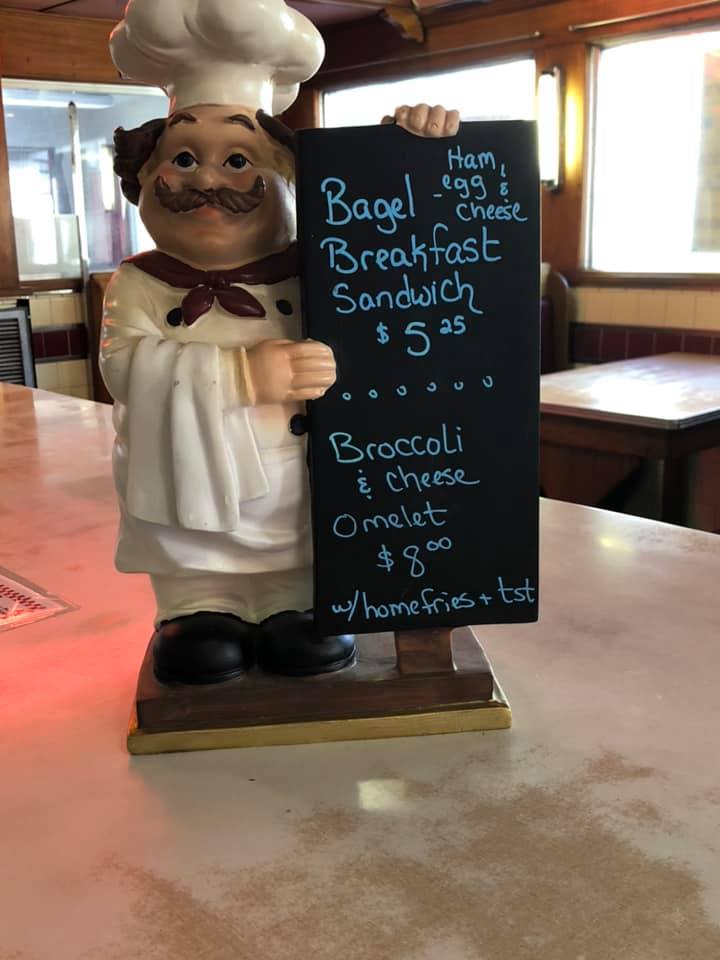 Bagel - Ham,
egg &
cheese
Breakfast
Sandwich
$ 5 25
Broccoli
& cheese
Omelet
$ 8 00
w/homefries + tst